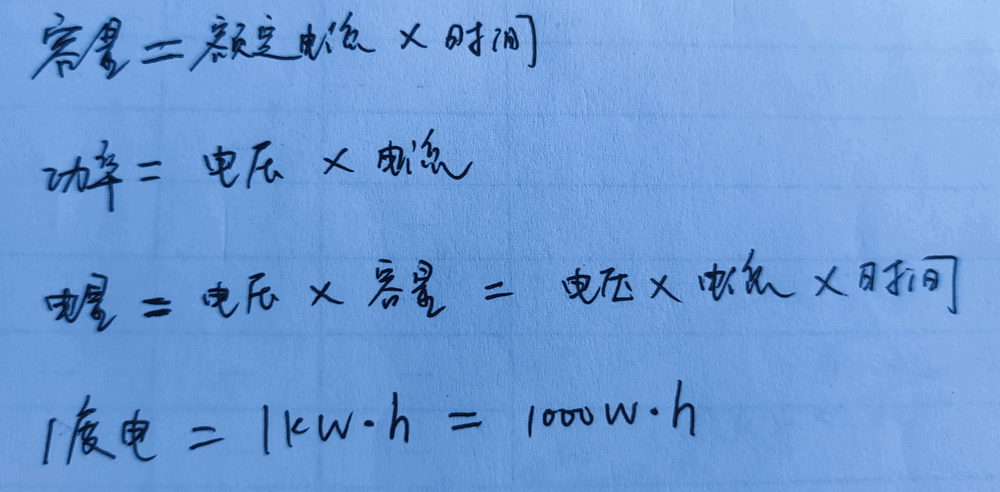 容量 = 额定电流 × 时间
功率 = 电压 × 电流
电量 = 电压 × 容量 = 电压 × 电流 × 时间
1度电 = 1kW·h = 1000W·h